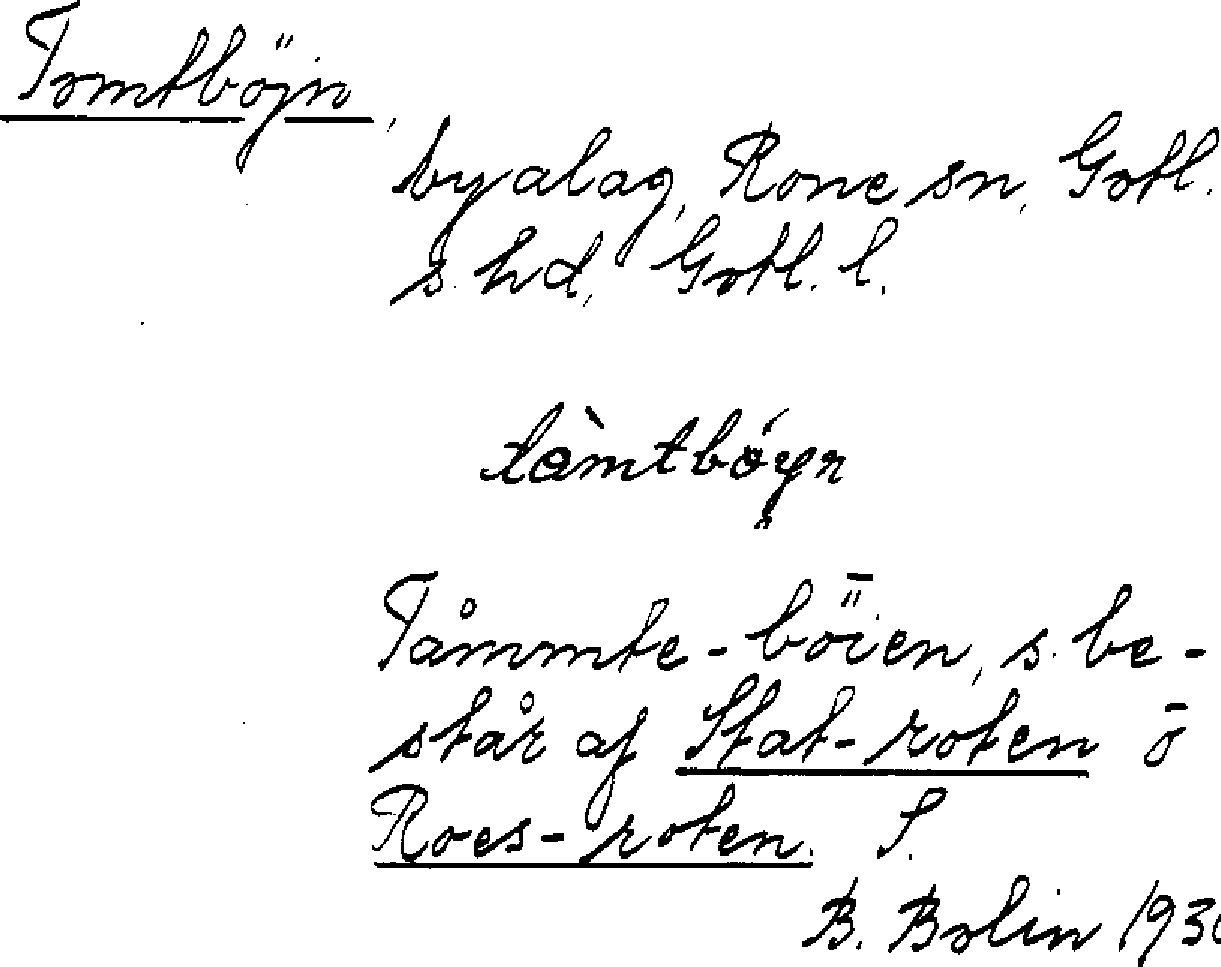 Tomtböjn,
byalag, Rone sn, Gotl.
s. hd, Gotl. l.
Tåmmte-böien, s. be-
står af Stat-roten ō
Roes-roten. S.
B. Bolin